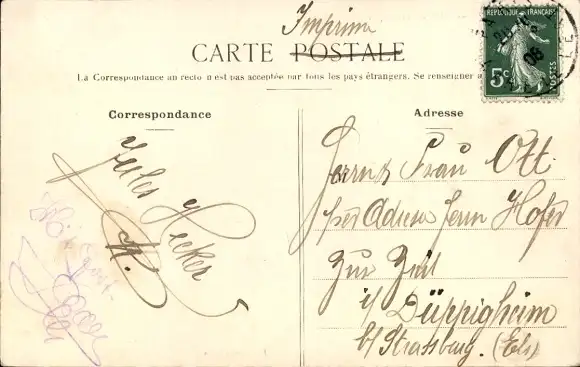 Imprimé
CARTE POSTALE
La Correspondance au recto n'est pas acceptée par tous les pays étrangers. Se renseigner
RÉPUBLIQUE FRANÇAISE
5c
POSTES
08
Correspondance
Adresse
Jules Hecker
Herrn & Frau Ott
per Adresse Herrn Hofer
Zur Zeit
i/ Düppigheim
b/ Strassburg. (Els)